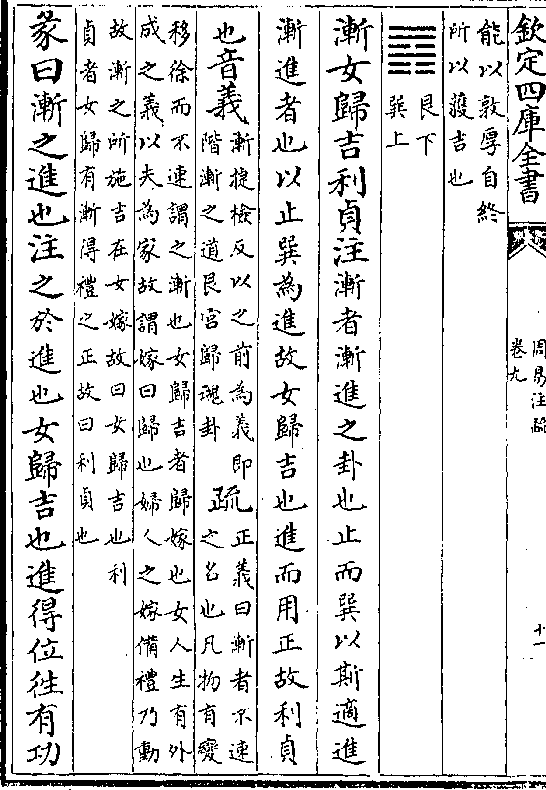 欽定四庫全書
周易注疏
卷九
十一
能以敦厚自終
所以獲吉也
艮下
巽上
漸女歸吉利貞注漸者漸進之卦也止而巽以斯適進
漸進者也以止巽為進故女歸吉也進而用正故利貞
也音義
漸捷檢反以之前為義即
階漸之道艮宮歸魂卦
疏
正義曰漸者不速
之名也凡物有變
移徐而不速謂之漸也女歸吉者歸嫁也女人生有外
成之義以夫為家故謂嫁曰歸也婦人之嫁備禮乃動
故漸之所施吉在女嫁故曰女歸吉也利
貞者女歸有漸得禮之正故曰利貞也
彖曰漸之進也注之於進也女歸吉也進得位往有功